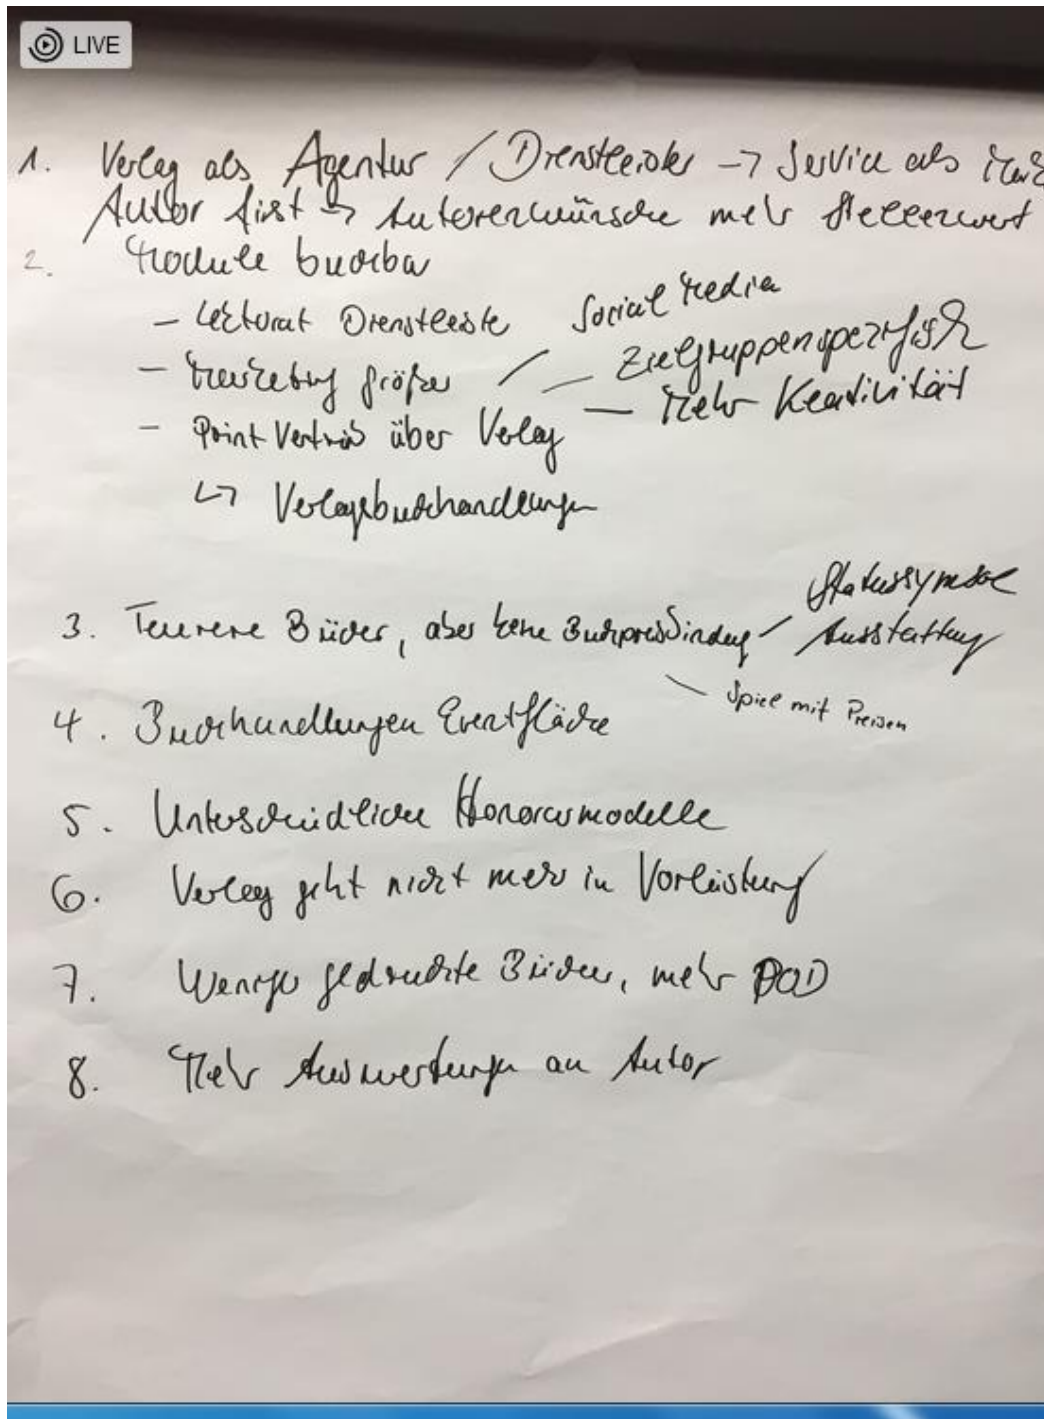 LIVE
1. Verlag als Agentur / Dienstleister → Service als
Autor first → Autorenwünsche mehr Stellenwert
2. Module buchbar
- Lektorat Dienstleiste
Social Media
- Marketing größer / — Zielgruppenspezifisch
— Mehr Kreativität
- Print Vertrieb über Verlag
↳ Verlagsbuchhandlungen
Statussymbol
3. Teurere Bücher, aber keine Buchpreisbindung / Ausstattung
\ Spiel mit Preisen
4. Buchhandlungen Eventfläche
5. Unterschiedliche Honorarmodelle
6. Verlag geht nicht mehr in Vorleistung
7. Weniger gedruckte Bücher, mehr POD
8. Mehr Auswertungen an Autor